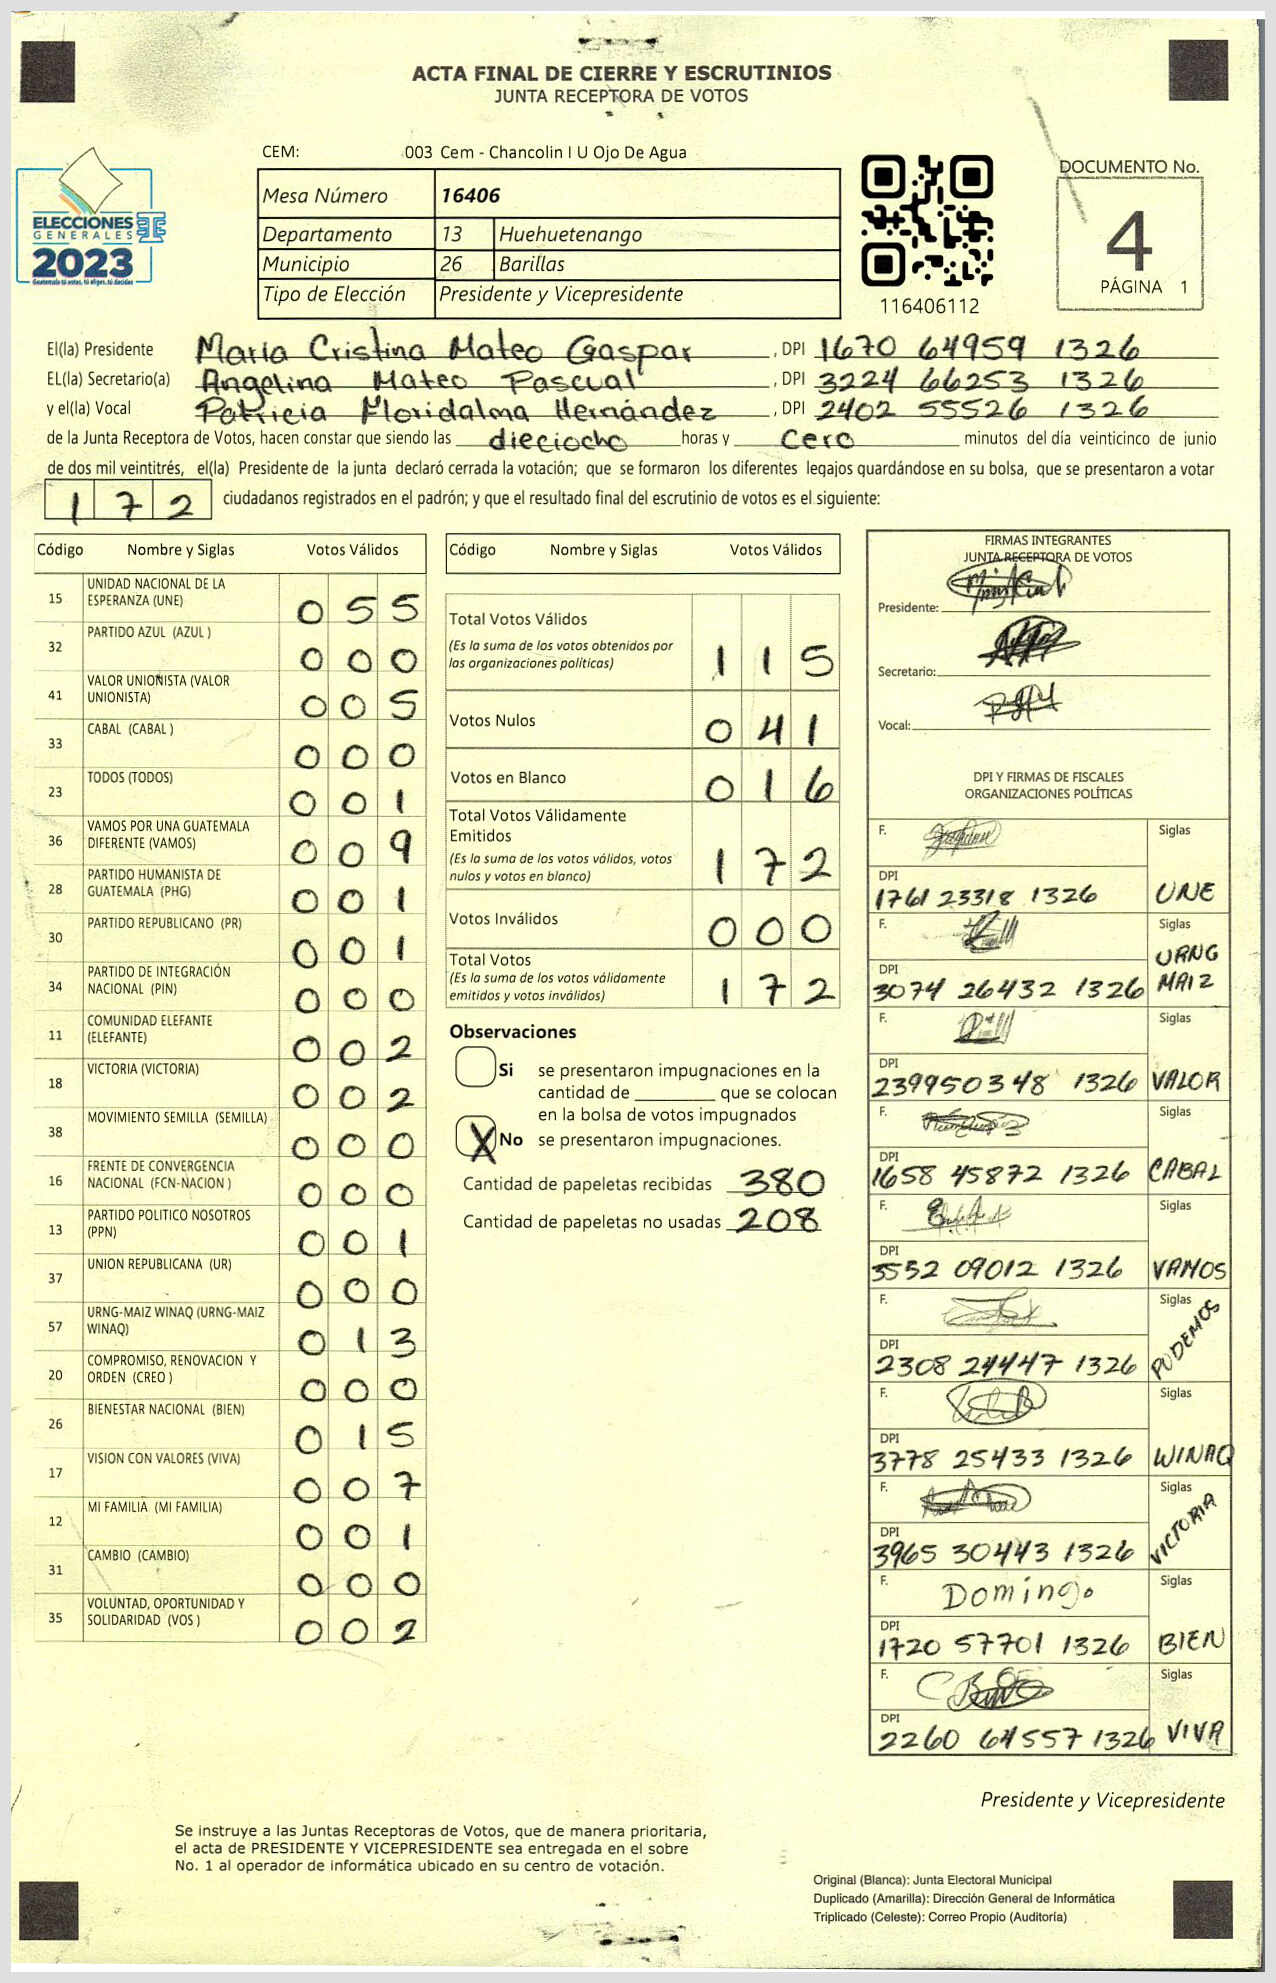 ACTA FINAL DE CIERRE Y ESCRUTINIOS
JUNTA RECEPTORA DE VOTOS
CEM: 003 Cem - Chancolin I U Ojo De Agua
Mesa Número 16406
Departamento 13 Huehuetenango
Municipio 26 Barillas
Tipo de Elección Presidente y Vicepresidente
ELECCIONES
GENERALES
2023
116406112
DOCUMENTO No.
4
PÁGINA 1
El(la) Presidente Maria Cristina Mateo Gaspar , DPI 1670 64959 1326
EL(la) Secretario(a) Angelina Mateo Pascual , DPI 3224 66253 1326
y el(la) Vocal Patricia Floridalma Hernández , DPI 2402 55526 1326
de la Junta Receptora de Votos, hacen constar que siendo las dieciocho horas y cero minutos del día veinticinco de junio
de dos mil veintitrés, el(la) Presidente de la junta declaró cerrada la votación; que se formaron los diferentes legajos quardándose en su bolsa, que se presentaron a votar
172 ciudadanos registrados en el padrón; y que el resultado final del escrutinio de votos es el siguiente:
Código Nombre y Siglas Votos Válidos
15 UNIDAD NACIONAL DE LA ESPERANZA (UNE) 055
32 PARTIDO AZUL (AZUL ) 000
41 VALOR UNIONISTA (VALOR UNIONISTA) 005
33 CABAL (CABAL ) 000
23 TODOS (TODOS) 001
36 VAMOS POR UNA GUATEMALA DIFERENTE (VAMOS) 009
28 PARTIDO HUMANISTA DE GUATEMALA (PHG) 001
30 PARTIDO REPUBLICANO (PR) 001
34 PARTIDO DE INTEGRACIÓN NACIONAL (PIN) 000
11 COMUNIDAD ELEFANTE (ELEFANTE) 002
18 VICTORIA (VICTORIA) 002
38 MOVIMIENTO SEMILLA (SEMILLA) 000
16 FRENTE DE CONVERGENCIA NACIONAL (FCN-NACION ) 000
13 PARTIDO POLITICO NOSOTROS (PPN) 001
37 UNION REPUBLICANA (UR) 000
57 URNG-MAIZ WINAQ (URNG-MAIZ WINAQ) 013
20 COMPROMISO, RENOVACION Y ORDEN (CREO ) 000
26 BIENESTAR NACIONAL (BIEN) 015
17 VISION CON VALORES (VIVA) 007
12 MI FAMILIA (MI FAMILIA) 001
31 CAMBIO (CAMBIO) 000
35 VOLUNTAD, OPORTUNIDAD Y SOLIDARIDAD (VOS ) 002
Código Nombre y Siglas Votos Válidos
Total Votos Válidos
(Es la suma de los votos obtenidos por las organizaciones políticas) 115
Votos Nulos 041
Votos en Blanco 016
Total Votos Válidamente Emitidos
(Es la suma de los votos válidos, votos nulos y votos en blanco) 172
Votos Inválidos 000
Total Votos
(Es la suma de los votos válidamente emitidos y votos inválidos) 172
Observaciones
Si se presentaron impugnaciones en la
cantidad de ________ que se colocan
en la bolsa de votos impugnados
X No se presentaron impugnaciones.
Cantidad de papeletas recibidas 380
Cantidad de papeletas no usadas 208
FIRMAS INTEGRANTES
JUNTA RECEPTORA DE VOTOS
Presidente:
Secretario:
Vocal:
DPI Y FIRMAS DE FISCALES
ORGANIZACIONES POLÍTICAS
F. Siglas
DPI
1761 23318 1326 UNE
F. Siglas
DPI
3074 26432 1326 URNG MAIZ
F. Siglas
DPI
239950348 1326 VALOR
F. Siglas
DPI
1658 45872 1326 CABAL
F. Siglas
DPI
3552 09012 1326 VAMOS
F. Siglas
DPI
2308 24447 1326 PODEMOS
F. Siglas
DPI
3778 25433 1326 WINAQ
F. Siglas
DPI
3965 30443 1326 VICTORIA
F. Domingo Siglas
DPI
1720 57701 1326 BIEN
F. Siglas
DPI
2260 64557 1326 VIVA
Presidente y Vicepresidente
Se instruye a las Juntas Receptoras de Votos, que de manera prioritaria,
el acta de PRESIDENTE Y VICEPRESIDENTE sea entregada en el sobre
No. 1 al operador de informática ubicado en su centro de votación.
Original (Blanca): Junta Electoral Municipal
Duplicado (Amarilla): Dirección General de Informática
Triplicado (Celeste): Correo Propio (Auditoría)